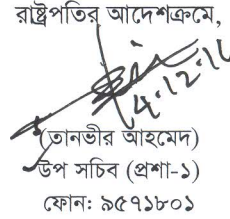 রাষ্ট্রপতির আদেশক্রমে,
4.12.16
(তানভীর আহমেদ)
উপ সচিব (প্রশা-১)
ফোন: ৯৫৭১৮০১